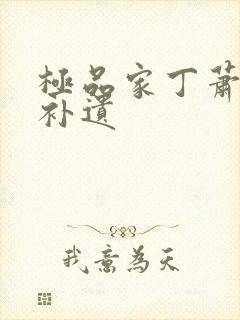 極品家丁蕭
补遗
我意為天